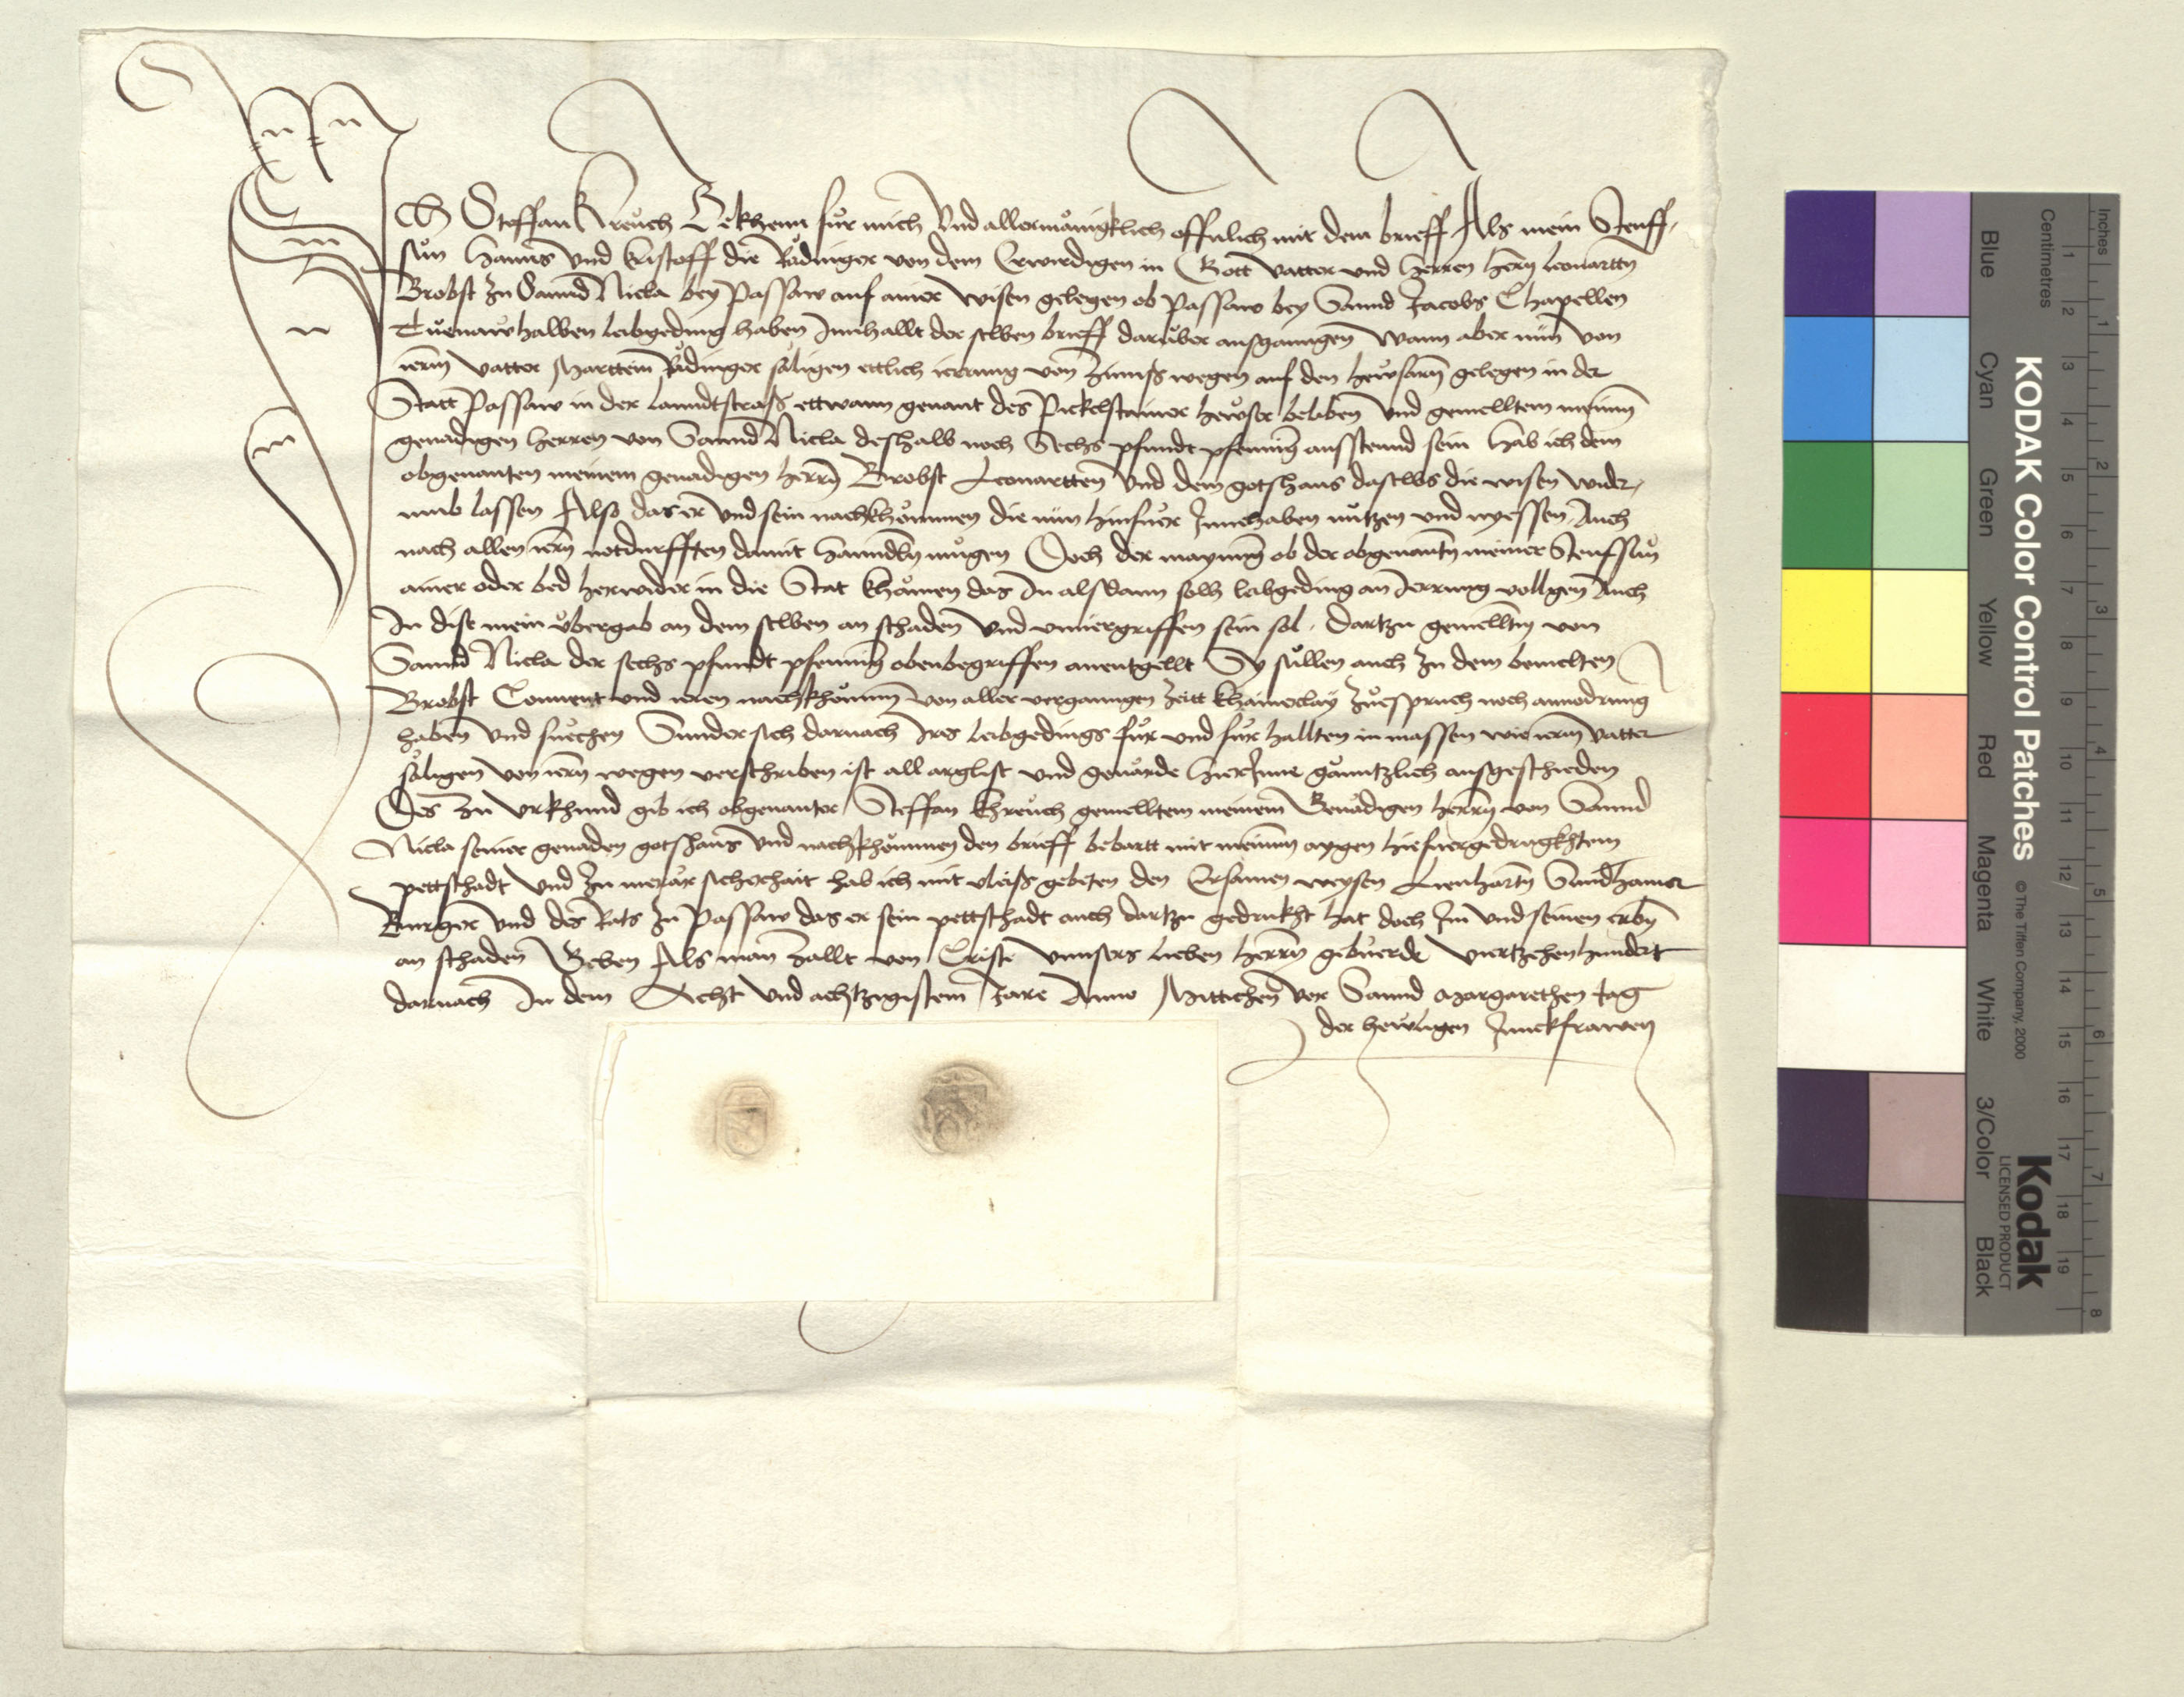 Ich Steffan Kreuch Bekhenn für mich Vnd allermänigklich offnlich mit dem brieff Als mein Steuff,
sün Hanns Vnd Cristoff die Rädinger von dem Erwirdigen in Gott vatter vnd Herren Herrn Leonarttn
Brobst zu Sannd Nicla bey Passaw auf ainer wisen gelegen ob Passaw bey Sannd Jacobs Chapellen
halben leibgeding haben Innhallt der selben brieff darüber ausgangen Wann aber nün von
ierm vatter Marttein Rädinger säligen ettlich irrung von Zinnss wegen auf den hewsern gelegen in der
Statt Passaw in der lanndtstrass ettwann genant des Pickelstainer hewser beliben Vnd gemelltem meinem
genadigen Herren von Sannd Nicla deshalb noch Sechs pfundt pfenning ausstennd sein Hab ich dem
obgenanten meinem genadigen Herrn Brobst Leonartten Vnd dem gotshaus daselbs die wisen wider,
umb lassen Also das er Vnd sein nachkhömmen die nün hinfüer Innehaben nützen vnd nyessen Auch
nach allen iern notdurfften damit hanndln mügen Doch der maynung ob der obgenantn meiner Steufsün
ainer oder bed herwider in die Stat khämen das In alsdann solh leibgeding an Irrung vollgen Auch
In dise mein übergab an dem selben an schaden Vnd vnuergriffen sein sol. dartzu gemelltm von
Sannd Nicla der sechs pfundt pfenning obenbegriffen anentgellt Sy süllen auch zu dem bemelten
Brobst Conuent vnd iren nachkhömmen von aller vergangen zeitt khainerlay zuespruch noch anuordrung
haben Vnd suechen Sunder sich darnach Irs leibgedings für vnd für hallten in massen wie ierm vatter
säligen von iern wegen verschriben ist all arglist vnd geuärde hierInne gänntzlich ausgeschieden
Des zu vrkhund gib ich obgenanter Steffan Khreuch gemelltem meinem Genädigen herrn von Sannd
Nicla seiner genaden gotshaus Vnd nachkhömmen den brieff bebartt mit meinem aygen hiefuergedrugkhtem
pettschadt Vnd zu merär sicherhait hab ich mit vleiss gebeten den Ersamen weysen Lienhartn Sundhamer
Burger Vnd des Rats zu Passaw das er sein pettschadt auch dartzu gedrukht hat doch Im vnd seinen erbn
an schaden Geben Als man zallt von Cristi vnnsers lieben herrn gebuerde viertzehenhundert
darnach In dem Acht Vnd achtzigistem Jare Anno Mittichen vor Sannd Margarethen tag
der heyligen Junckfrawen
Inches
Centimetres
KODAK Color Control Patches
© The Tiffen Company, 2000
Kodak
LICENSED PRODUCT
Blue Cyan Green Yellow Red Magenta White 3/Color Black
1 2 3 4 5 6 7 8 9 10 11 12 13 14 15 16 17 18 19
1 2 3 4 5 6 7 8